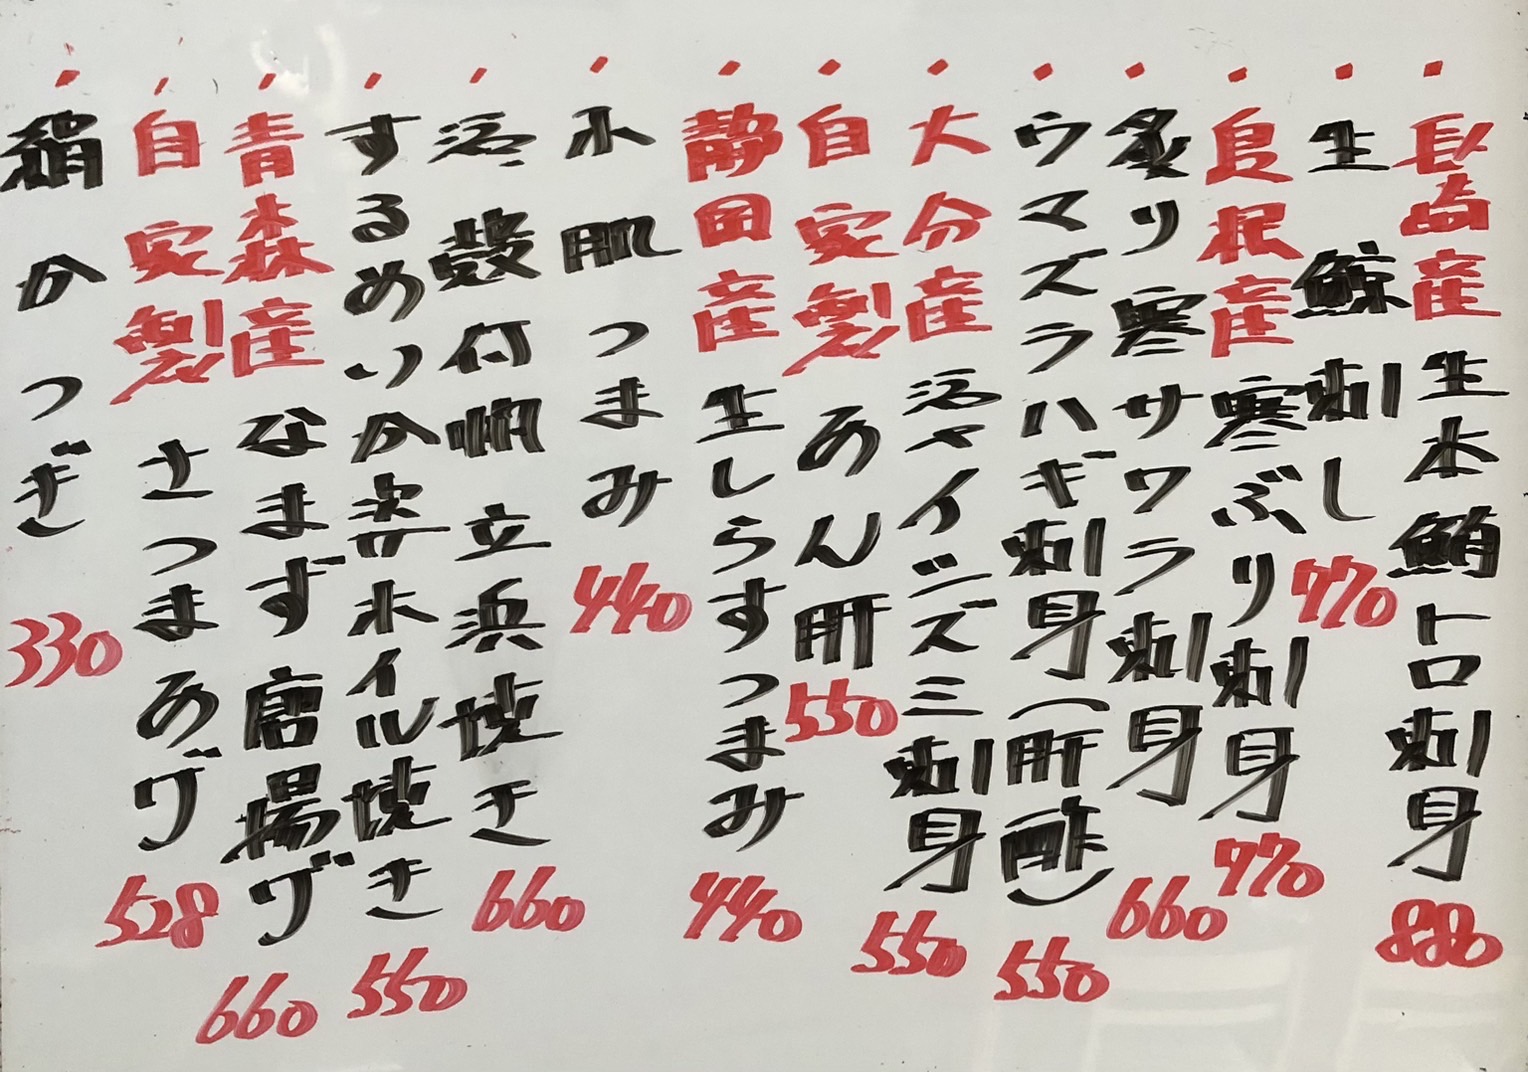 ・長崎産生本鮪トロ刺身 880
・生鯨刺し 770
・島根産寒ぶり刺身 770
・炙り寒サワラ刺身 660
・ウマズラハギ刺身(肝酢) 550
・大分産活〆イシズ三刺身 550
・自家製あん肝 550
・静岡産生しらすつまみ 440
・氷肌つまみ 440
・活殻付帆立浜焼き 660
・するめいか姿ホイル焼き 550
・青森産なまず唐揚げ 660
・自家製さつまあげ 528
・絹かつぎ 330